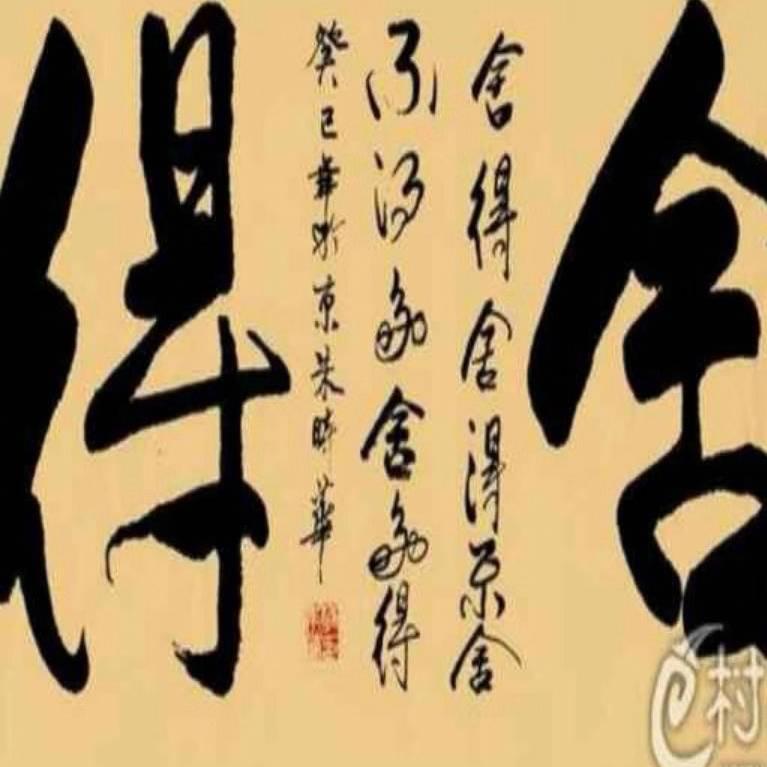 舍
舍得舍得不舍
不得多舍多得
癸巳年於京朱時華
得
村